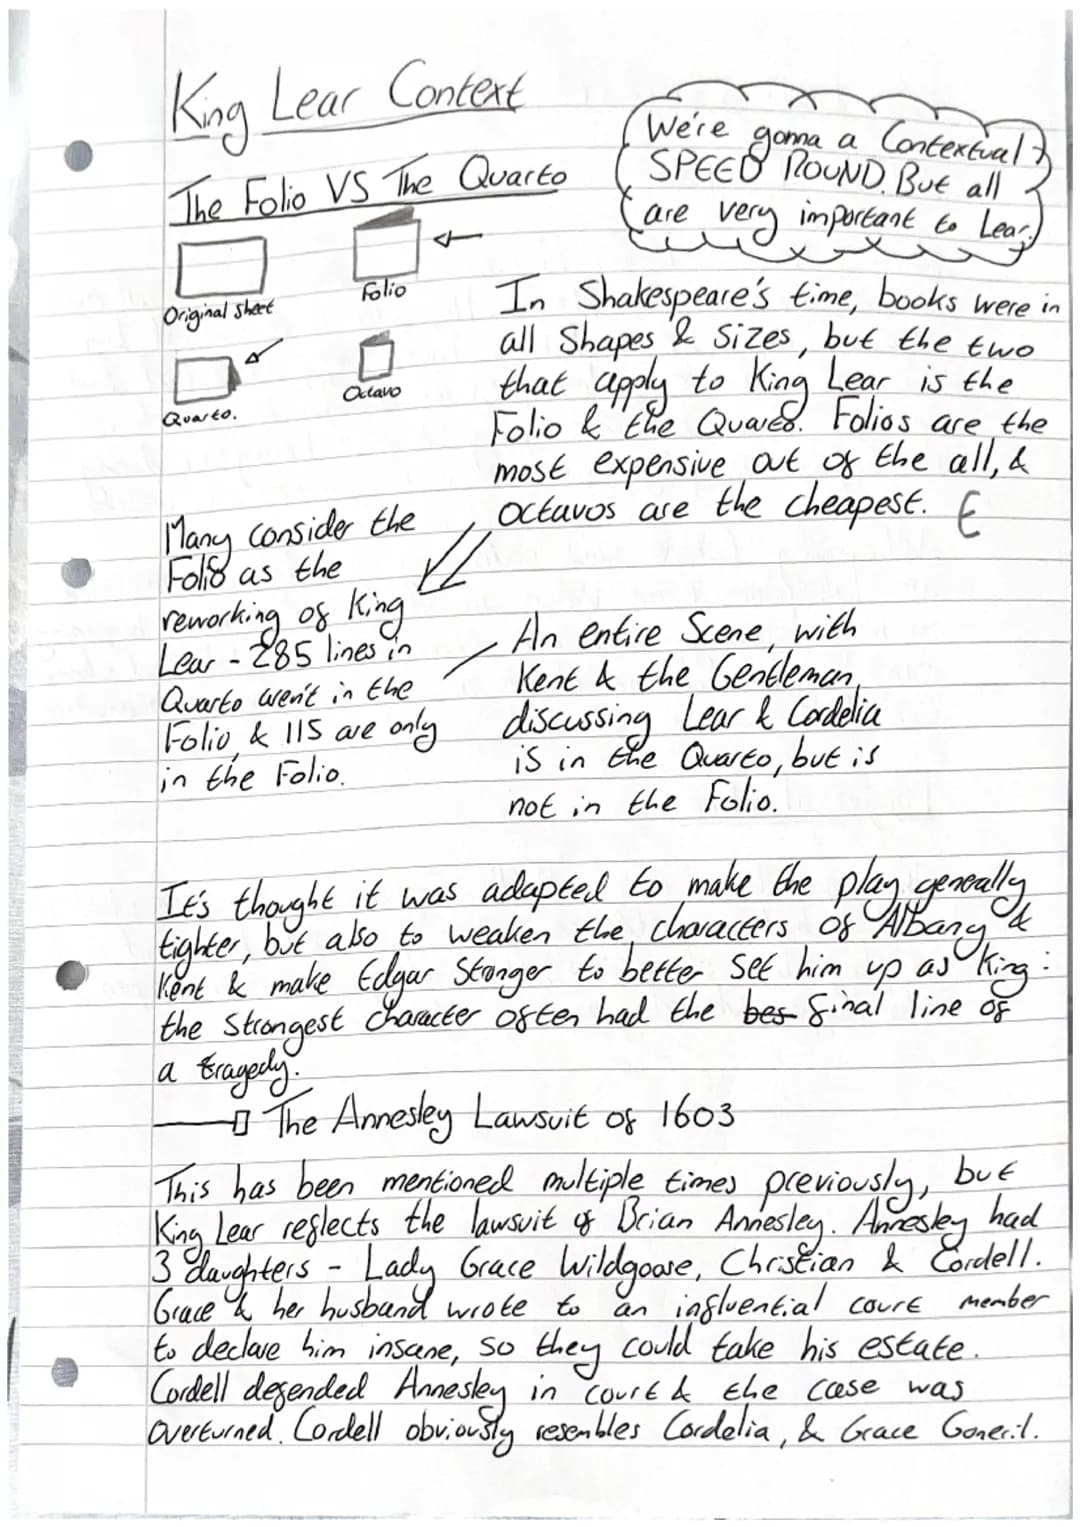 King Lear Context
We're gonna a Contextual
SPEED ROUND. But all
are very important to Lear.
The Folio VS The Quarto
Original Sheet
Folio
Quarto.
Octavo
In Shakespeare's time, books were in
all Shapes & Sizes, but the two
that apply to King Lear is the
Folio & the Quarto. Folios are the
most expensive out of the all, &
octavos are the cheapest.
Many consider the
Folio as the
reworking of King
Lear - 285 lines in
Quarto weren't in the
Folio, & 115 are only
in the Folio.
An entire Scene, with
Kent & the Gentleman,
discussing Lear & Cordelia
is in the Quarto, but is
not in the Folio.
It's thought it was adapted to make the play generally
tighter, but also to weaken the characters of Albany &
Kent & make Edgar Stronger to better Set him up as King:
the Strongest character often had the bes final line of
a tragedy.
The Annesley Lawsuit of 1603
This has been mentioned multiple times previously, but
King Lear reflects the lawsuit of Brian Annesley. Annesley had
3 daughters - Lady Grace Wildgoose, Christian & Cordell.
Grace & her husband wrote to an influential court member
to declare him insane, so they could take his estate.
Cordell defended Annesley in court & the case was
overturned. Cordell obviously resembles Cordelia, & Grace Goneril.